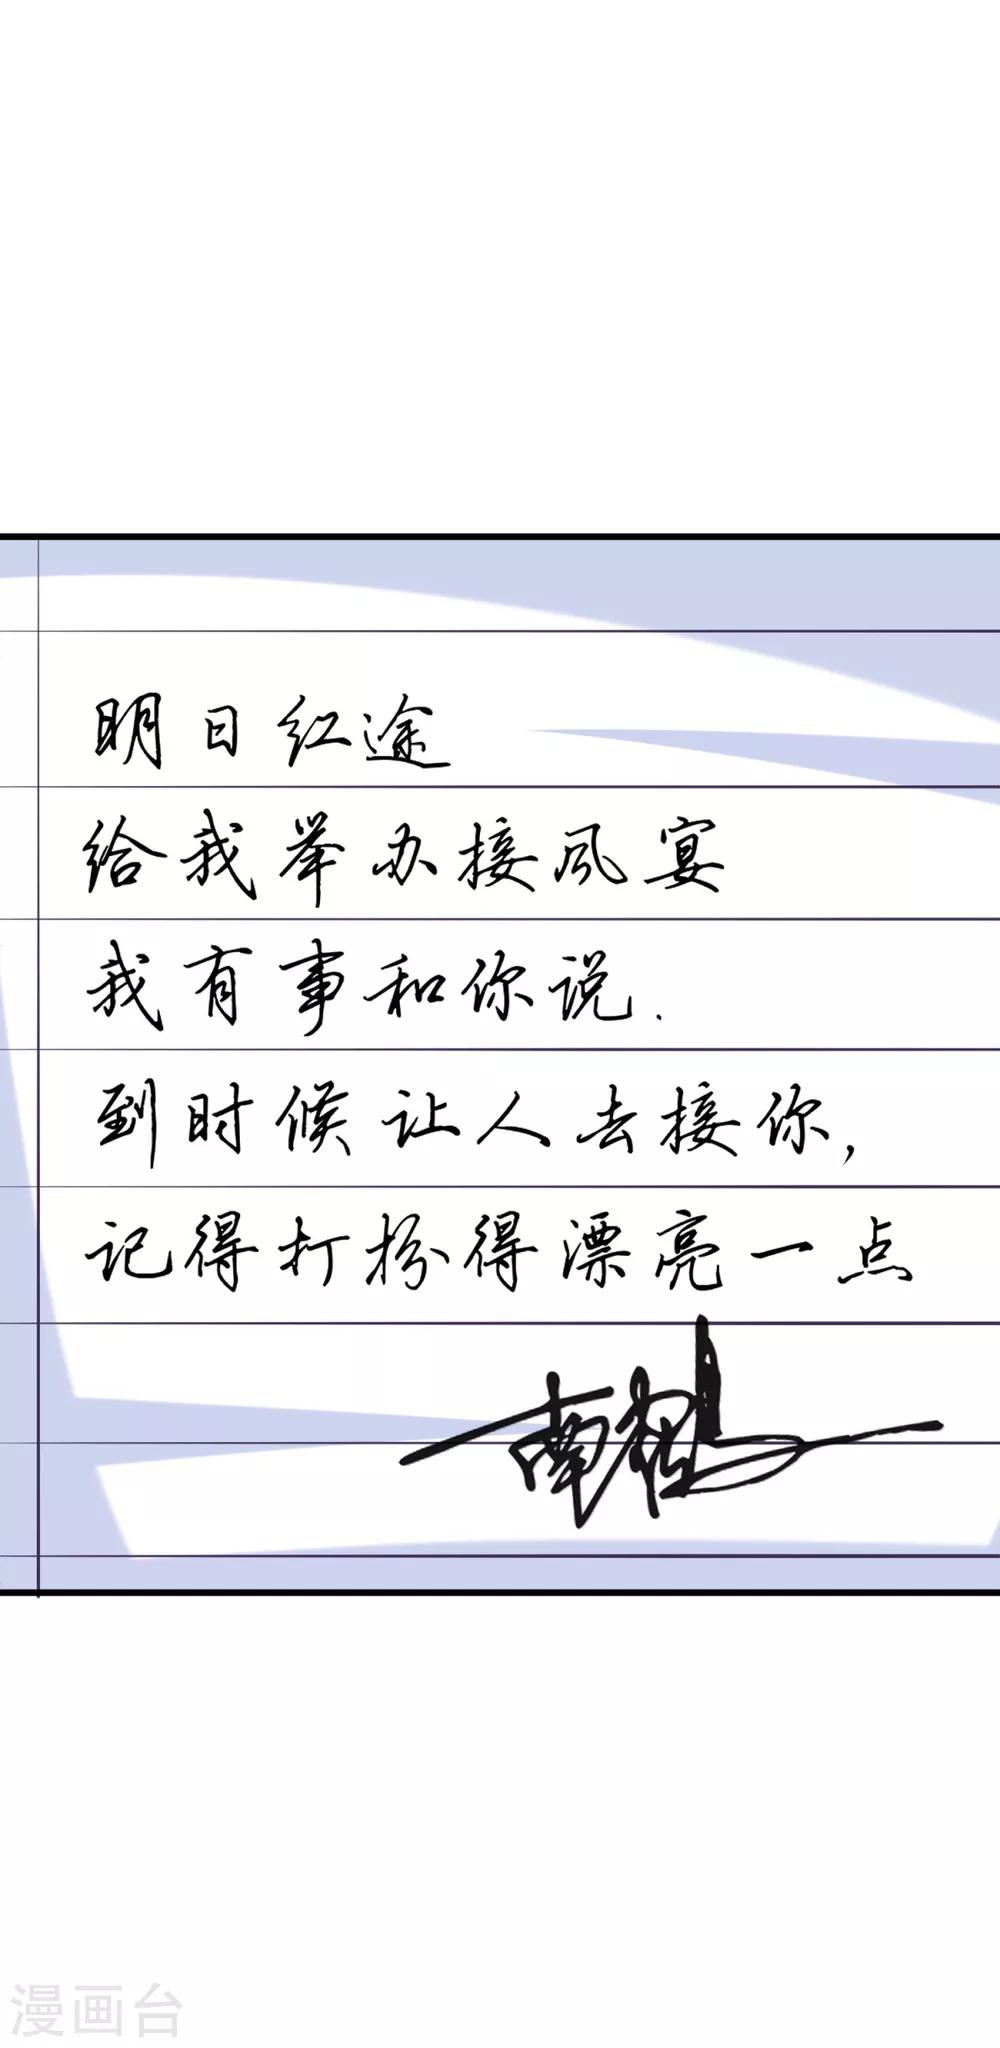 明日红途
给我举办接风宴
我有事和你说.
到时候让人去接你,
记得打扮得漂亮一点
漫画台